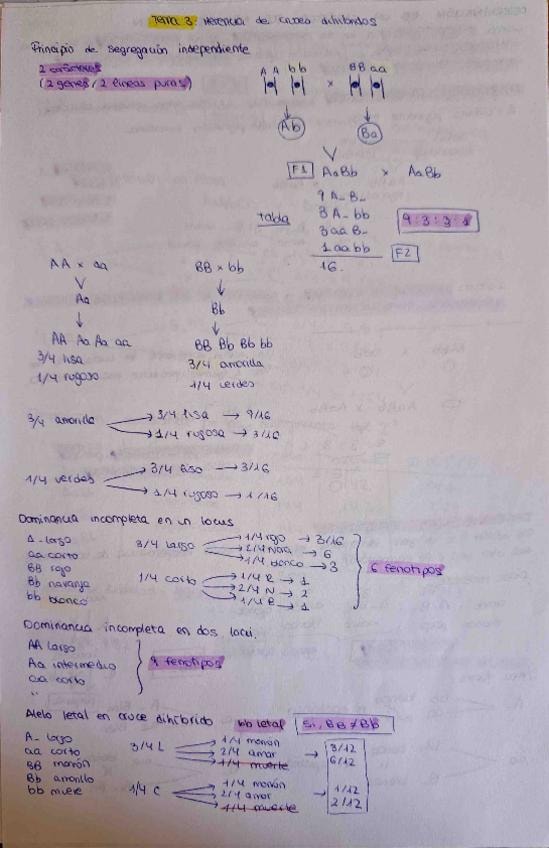 Tema 3. Herencia de cruces dihíbridos
Principio de segregación independiente
2 caracteres
(2 genes / 2 líneas puras)
A A b b × BB aa
Ab Ba
F1 AaBb × AaBb
tabla
9 A_ B_
3 A_ bb
3 aa B_
1 aa bb
16.
9:3:3:1
F2
AA × aa BB × bb
Aa Bb
AA Aa Aa aa BB Bb Bb bb
3/4 lisa 3/4 amarilla
1/4 rugoso 1/4 verdes
3/4 amarilla 3/4 lisa → 9/16
1/4 rugosa → 3/16
1/4 verdes 3/4 liso → 3/16
1/4 rugoso → 1/16
Dominancia incompleta en un locus
A_ largo
aa corto
BB rojo
Bb naranja
bb blanco
3/4 largo 1/4 rojo → 3/16
2/4 Nara → 6
1/4 blanco → 3
1/4 corto 1/4 R → 1
2/4 N → 2
1/4 B → 1
6 fenotipos
Dominancia incompleta en dos loci.
AA largo
Aa intermedio
aa corto
"
9 fenotipos
Alelo letal en cruce dihíbrido bb letal Si, BB ≠ Bb
A_ largo
aa corto
BB marrón
Bb amarillo
bb muere
3/4 L 1/4 marrón → 3/12
2/4 amar 6/12
1/4 muerte
1/4 C 1/4 marrón → 1/12
2/4 amar 2/12
1/4 muerte